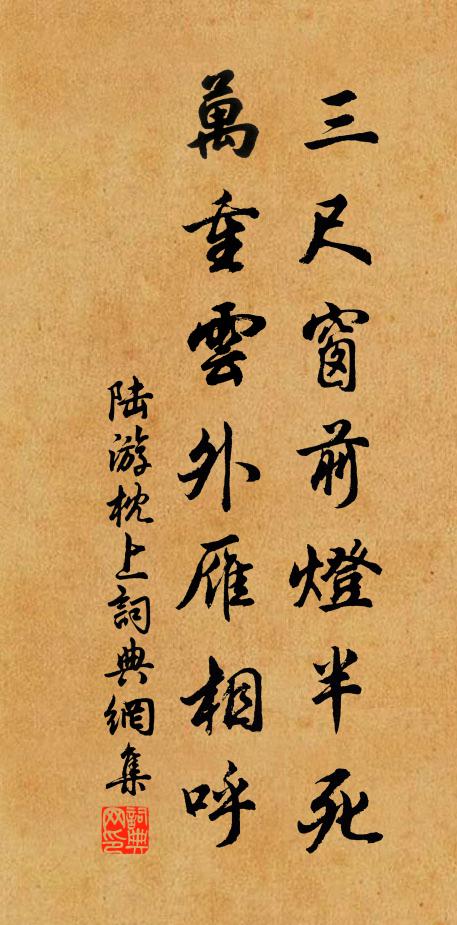 三尺窗前燈半死
萬重雲外雁相呼
陸游枕上詞典網集
詞典
网印